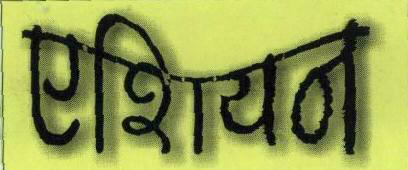 एशियन